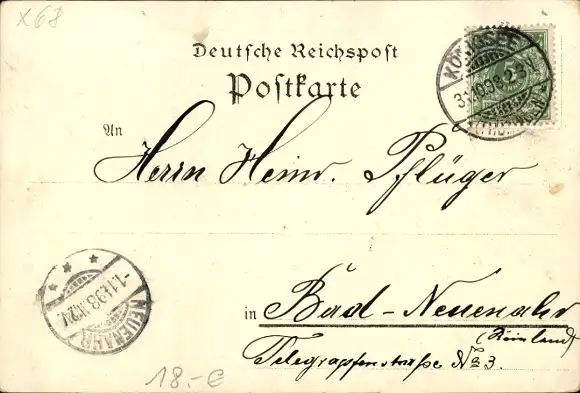 x68
Deutsche Reichspost
Postkarte
KÖNIGSEE
31.10.98.2-3N.
(THÜR.)
An
Herrn Heinr. Pflüger
in Bad-Neuenahr
(Rheinland)
Telegrafenstraße No 3.
NEUENAHR
-1.11.98.
18.-€